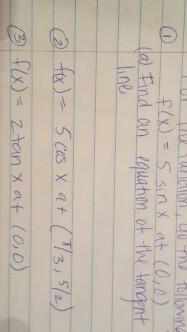 function, do the following
① f(x) = 5 sin x at (0,0)
(a) Find an equation of the tangent
line
② f(x) = 5 cos x at (π/3, 5/2)
③ f(x) = 2 tan x at (0,0)